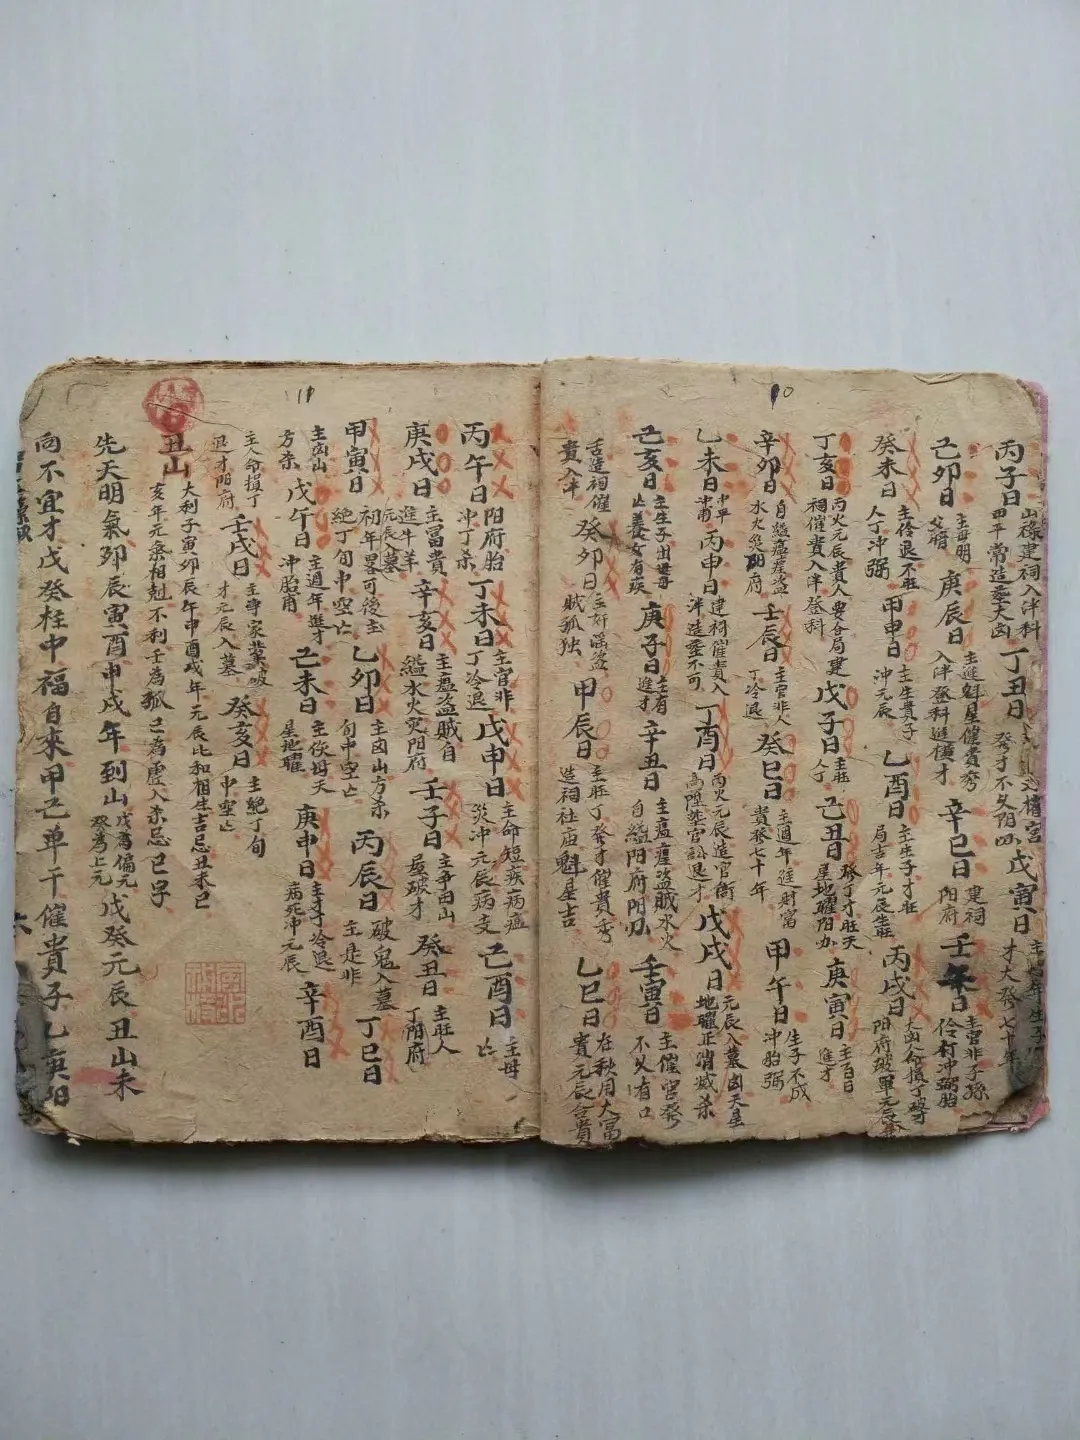 10
丙子日 山祿建祠入泮科 田平常造葬大凶 丁丑日 癸才不久陽 戊寅日 才大發七十年
己卯日 庚辰日 主進魁星催貴秀 入泮登科進橫才 辛巳日 建祠 陽府 壬午日 主官非子孫 伶仃冲弼胎
癸未日 主伶退不旺 人丁冲弼 甲申日 主生貴子 冲元辰 乙酉日 主生子才旺 局吉年元辰生旺 丙戌日 大凶人命損丁 阳府
丁亥日 丙火元辰貴人要合局建 祠催貴入泮登科 戊子日 主旺 人丁 己丑日 發丁才旺天 星地曜阳 庚寅日 主百日 進才
辛卯日 自縊瘟瘟盗 水火災阳府 壬辰日 主官非人 丁冷退 癸巳日 主週年進財富 貴發七十年 甲午日 生子不成 冲胎弼
乙未日 丙申日 建祠催貴入 泮造葬不可 丁酉日 丙火元辰造官衙 高陞 官訟退才 戊戌日 元辰入墓凶天星 地曜正消滅杀
己亥日 主生子出 養女有疾 庚子日 主有 進才 辛丑日 主瘟瘟盗賊水火 自縊阳府阴 壬寅日 主催官發 不久有口
舌造祠催 貴全半 癸卯日 主好滛盗 賊孤独 甲辰日 主旺丁發才催貴秀 造祠社庙魁星吉 乙巳日 在秋月大富 貴元辰合貴
11
丙午日 阳府胎 冲丁杀 丁未日 主官非 丁冷退 戊申日 主命短疾病瘟 災冲元辰病支 己酉日 主母
庚戌日 主富貴 進牛羊 元辰墓 辛亥日 主瘟盗賊自 縊水火災阳府 壬子日 主争由山 屋破才 癸丑日 主旺人 丁阳府
甲寅日 初年畧可後主 絶丁旬中空亡 乙卯日 主凶山方杀 旬中空亡 丙辰日 破鬼入墓 主是非 丁巳日
主凶山 方杀 戊午日 主週年進才 冲胎 己未日 主伤母天 星地曜 庚申日 主丁才冷退 病死冲元辰 辛酉日
主人命損丁 退才阳府 壬戌日 主專家業破 才元辰入墓 癸亥日 主絶丁旬 中空亡
丑山 大利子寅卯辰午申酉戌年元辰比和相生吉忌丑未巳 亥年元乘相尅不利壬為孤己為虛入杀忌巳字
先天明氣卯辰寅酉申戌年到山戊為偏元 癸為上元戊癸元辰丑山未
向不宜才戊癸柱中福自來甲己单干催貴子乙庚阳